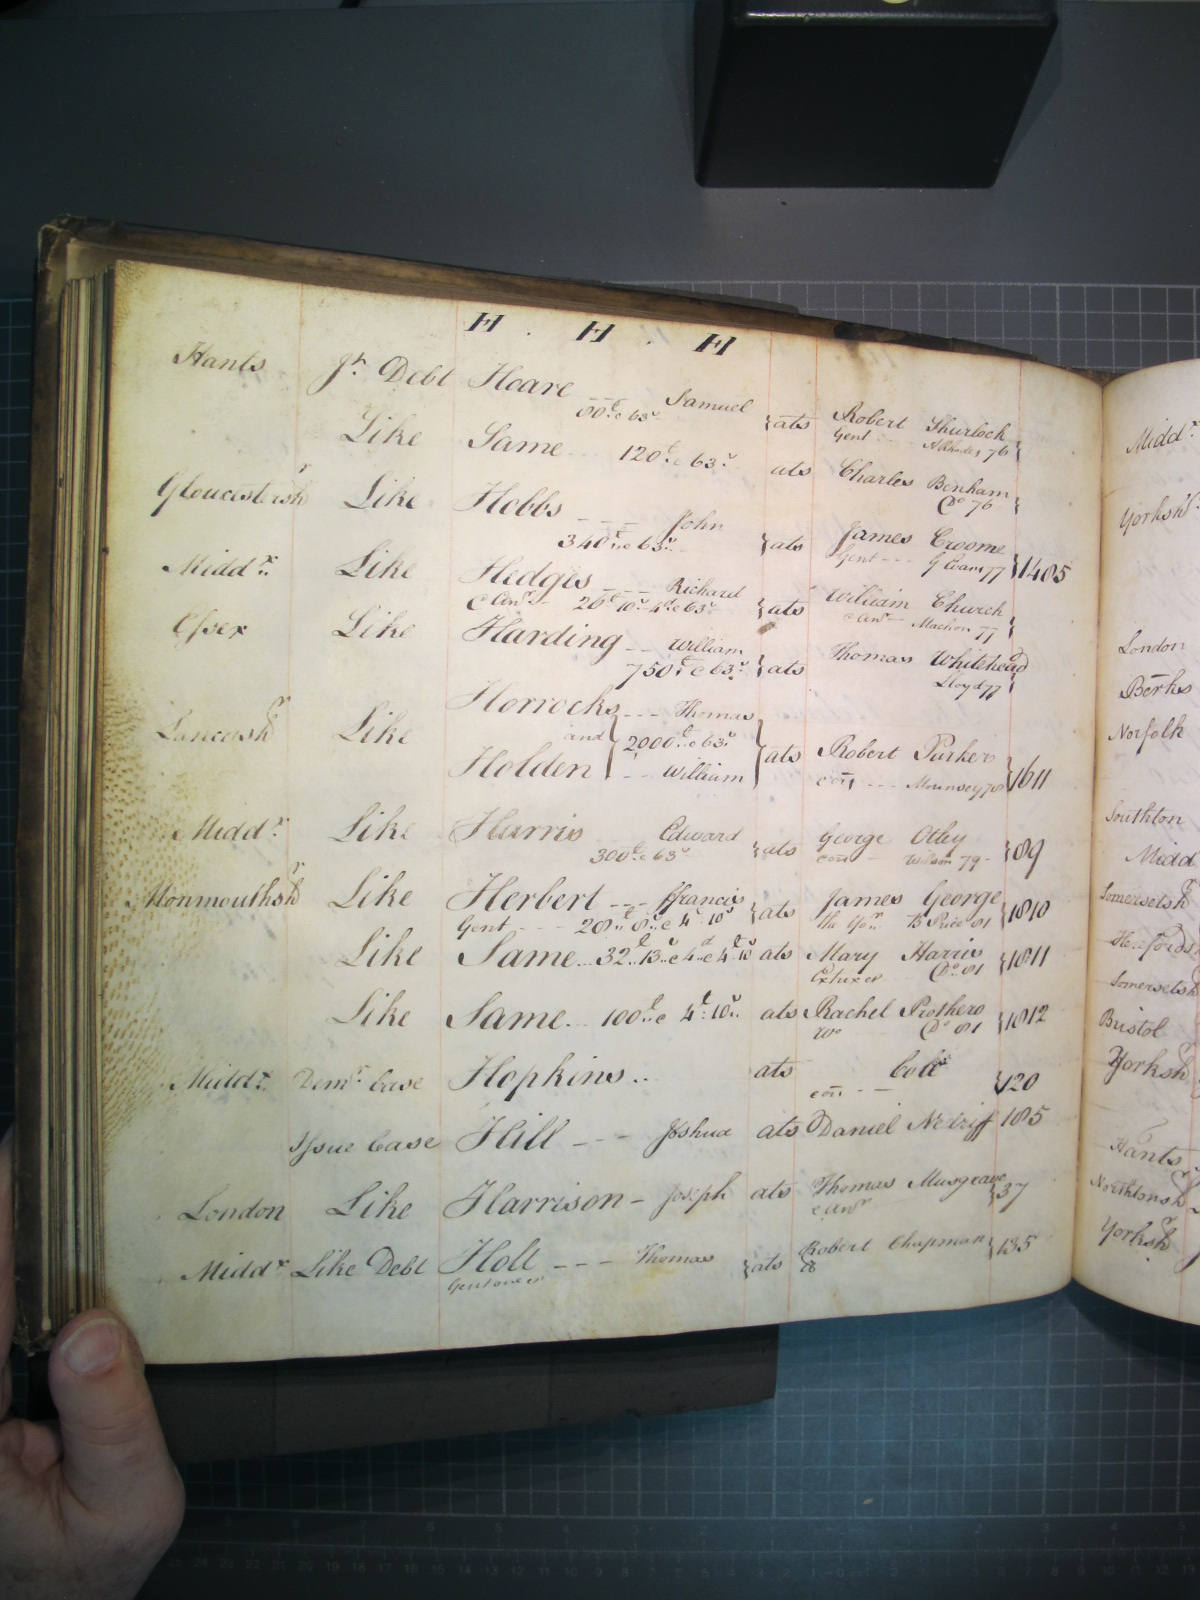 H . H . H
Hants Jt. Debt Hoare -- Samuel
80£ & 63s } ats Robert Shurlock
Gent 76
Like Same 120£ & 63s ats Charles Benham
Do 76
Gloucestersh Like Hobbs --- John
340£ & 63s } ats James Croome
Gent --- 77 } 1405
Middx Like Hedges --- Richard
26£ 10s 4d & 63s } ats William Church
Machon 77
Essex Like Harding -- William
750£ & 63s } ats Thomas Whitehead
Lloyd 77
Lancash Like Horrocks --- Thomas
and 2000£ & 63s } ats Robert Parker
Holden -- William Mounsey 78 } 1611
Middx Like Harris Edward
300£ & 63s } ats George Otley
Wilson 79 } 89
Monmouthsh Like Herbert --- ffrancis } ats James George
Gent --- 20£ 8s & 4£ 10s Price 81 } 1810
Like Same 32£ 13s & 4d & 4£ 10s ats Mary Harris
Do 81 } 1811
Like Same 100£ & 4£ 10s ats Rachel Prothero
Wo Do 81 } 1812
Middx Demr. Case Hopkins .. ats
con -- } 120
Issue Case Hill --- Joshua ats Daniel 185
London Like Harrison - Joseph ats Thomas Musgrave } 37
Middx Like Debt Holt --- Thomas } ats Robert Chapman } 135
Middx
Yorksh
London
Berks
Norfolk
Southton
Midd
Somersetsh
Herefords
Somersetsh
Bristol
Yorksh
Hants
Northtonsh
Yorksh